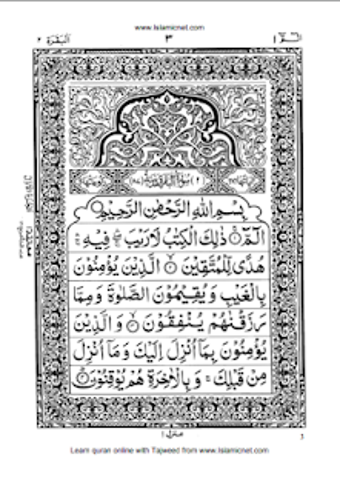 www.Islamicnet.com
البقرة ٢
٣
الٓمّٓ ١
بِسْمِ اللهِ الرَّحْمٰنِ الرَّحِيْمِ
الٓمّٓ ۚ ذٰلِكَ الْكِتٰبُ لَا رَيْبَ ۛ فِيْهِ ۛ
هُدًى لِّلْمُتَّقِيْنَ ۙ الَّذِيْنَ يُؤْمِنُوْنَ
بِالْغَيْبِ وَيُقِيْمُوْنَ الصَّلٰوةَ وَمِمَّا
رَزَقْنٰهُمْ يُنْفِقُوْنَ ۙ وَالَّذِيْنَ
يُؤْمِنُوْنَ بِمَآ اُنْزِلَ اِلَيْكَ وَمَآ اُنْزِلَ
مِنْ قَبْلِكَ ۚ وَبِالْاٰخِرَةِ هُمْ يُوْقِنُوْنَ ؕ
منزل ١
3
Learn quran online with Tajweed from www.Islamicnet.com